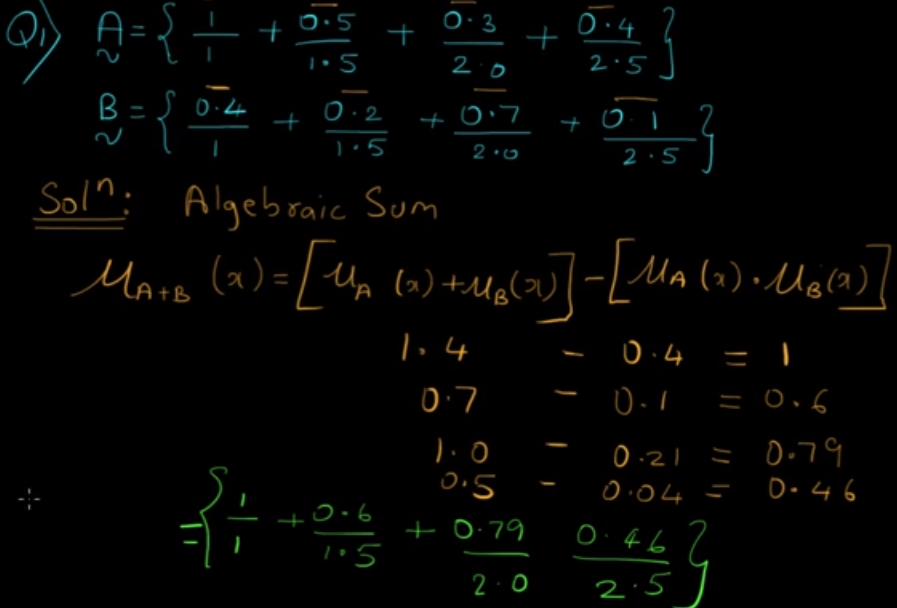 Q1) A = { 1/1 + 0.5/1.5 + 0.3/2.0 + 0.4/2.5 }
B = { 0.4/1 + 0.2/1.5 + 0.7/2.0 + 0.1/2.5 }
Solⁿ: Algebraic Sum
μ_{A+B} (x) = [μ_A (x) + μ_B(x)] - [μ_A (x) . μ_B(x)]
1.4 - 0.4 = 1
0.7 - 0.1 = 0.6
1.0 - 0.21 = 0.79
0.5 - 0.04 = 0.46
= { 1/1 + 0.6/1.5 + 0.79/2.0 0.46/2.5 }